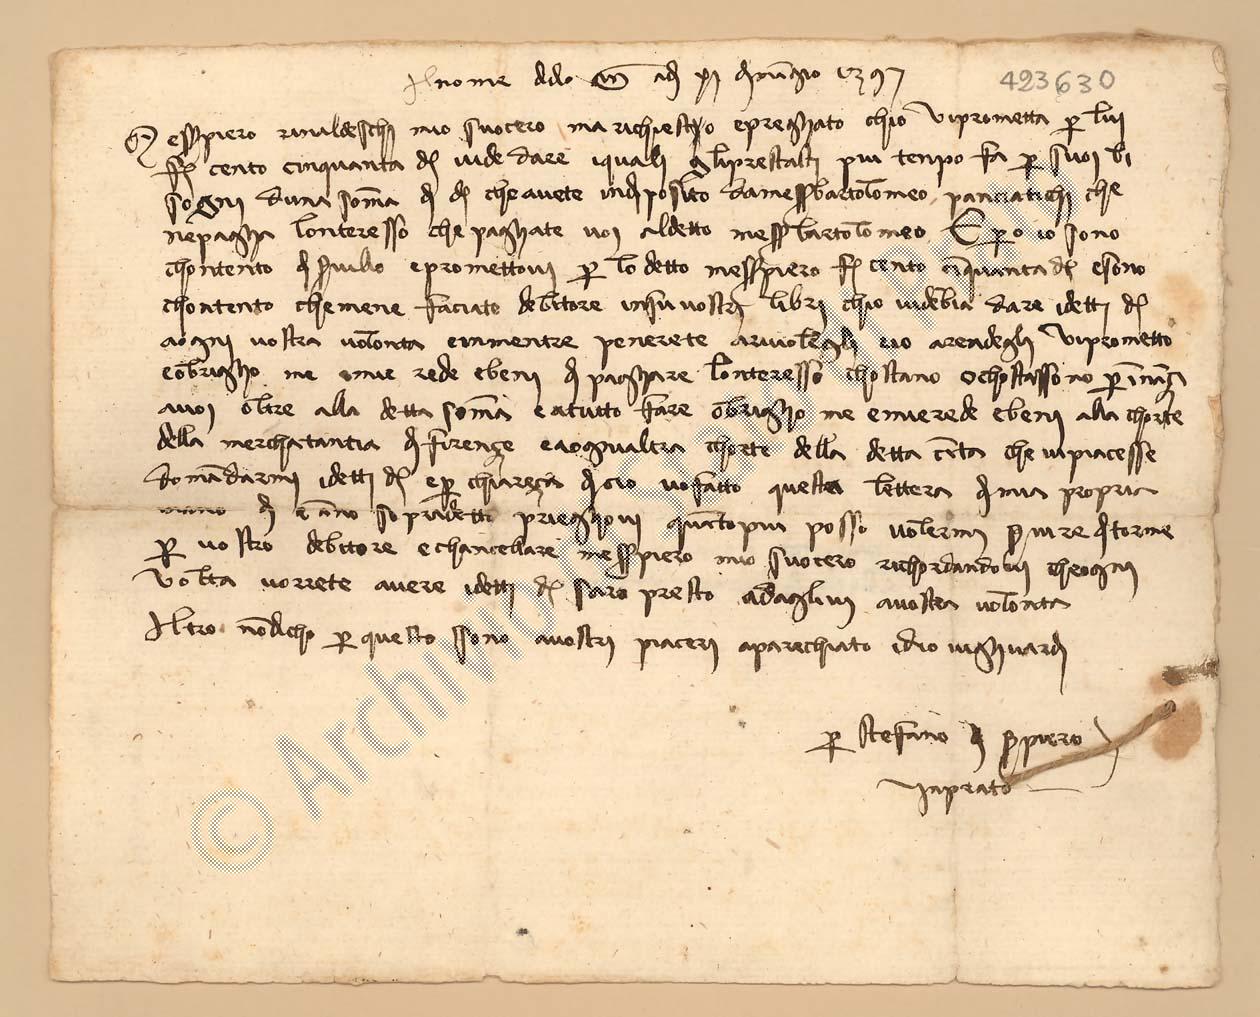 Al nome di dio amen adi xi di maggio 1397 423630
Messer piero rinaldeschi mio suocero ma richiesto e preghato chio vi prometta per lui
f. cento cinquanta d. vi de dare i quali gli prestasti piu tempo fa per suoi bi
sogni duna somma di d. che avete in diposito da messer bartolomeo panciatichi che
ne pagha lonteresso che paghate voi al detto messer bartolomeo E pero io sono
chontento di servillo e promettovi per lo detto messer piero f. cento cinquanta d. e sono
chontento che me ne faciate debitore in su vostri libri chio vi debia dare i detti d.
a ogni vostra volonta e in mentre penerete a rivolegli e io a rendegli vi prometto
e obrigho me e mie rede e beni di paghare lonteresso chostano o chostassono per inanzi
a voi oltre alla detta somma e a tutto fare obrigho me e mie rede e beni alla chorte
della merchatantia di firenze e a ogni altra chorte della detta citta che vi piacesse
domandarmi i detti d. e per chiareza di cio vo fatto questa lettera di mia propria
mano di e anno sopradetti prieghovi quanto piu posso volermi servire di torme
per vostro debitore e chancellare messer piero mio suocero richordandovi che ogni
volta vorrete avere i detti d. saro presto a dagluvi a vostra volonta
Altro non dicho per questo sono a vostri piaceri aparechiato idio vi ghuardi
per Stefano di ser piero
in prato
© Archivio di Stato